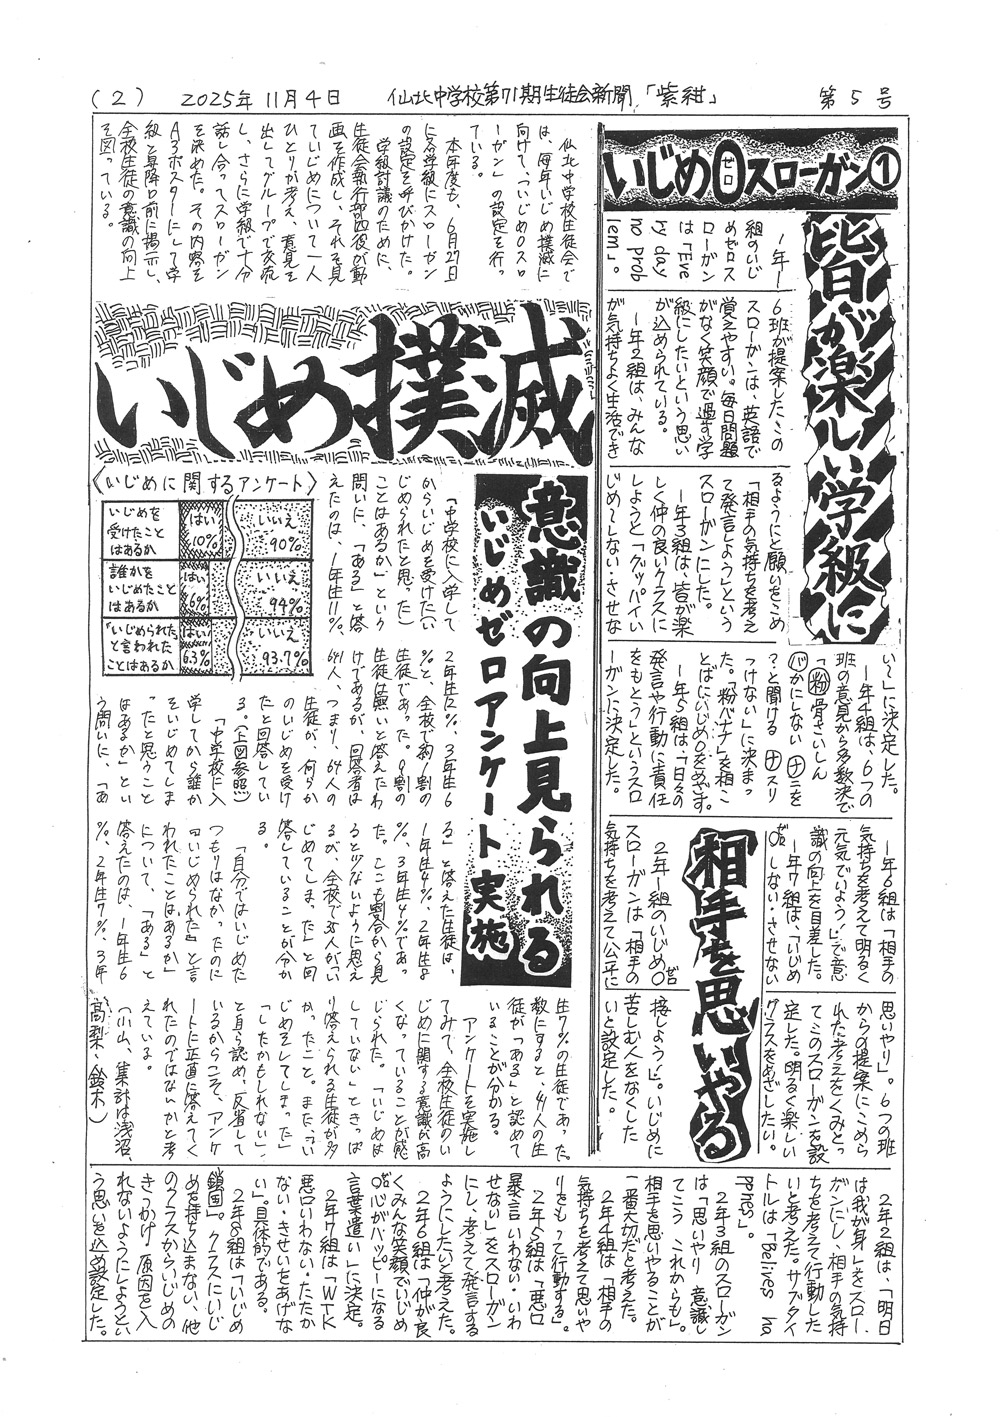 (2)　2025年11月4日　仙北中学校第71期生徒会新聞「紫紺」　第5号
いじめ0ゼロスローガン①
皆が楽しい学級に
　1年1
組のいじ
めゼロス
ローガン
は「Eve
ry day
no prob
lem」。
6班が提案したこの
スローガンは、英語で
覚えやすい。毎日問題
がなく笑顔で過す学
級にしたいという思い
が込められている。
　1年2組は、みんな
が気持ちよく生活でき
るようにと願いをこめ
「相手の気持ちを考え
て発言しよう」という
スローガンにした。
　1年3組は、皆が楽
しく仲の良いクラスに
しようと「グッバイい
じめ〜しない・させな
い〜」に決定した。
　1年4組は、6つの
班の意見から多数決で
「粉骨さいしん
バかにしない ナニを
？と聞ける ナスリ
つけない」に決まっ
た。「粉バナナ」を相こ
とばにいじめ0をめざす。
　1年5組は、「日々の
発言や行動に責任
をもとう」というスロ
ーガンに決定した。
　1年6組は「相手の
気持ちを考えて明るく
元気でいよう！」で意
識の向上を目差した。
　1年7組は、「いじめ
0ゼロ しない・させない
思いやり」。6つの班
からの提案にこめら
れた考えをくみとっ
てこのスローガンを設
定した。明るく楽しい
クラスをめざしたい。
相手を思いやる
　2年1組のいじめ0ゼロ
スローガンは「相手の
気持ちを考えて公平に
接しよう！」。いじめに
苦しむ人をなくした
いと設定した。
　2年2組は、「明日
は我が身」をスロー
ガンにし、相手の気持
ちを考えて行動した
いと考えた。サブタイ
トルは「Believes ha
ppnes」。
　2年3組のスローガン
は「思いやり 意識し
てこう これからも」。
相手を思いやることが
一番大切だと考えた。
　2年4組は「相手の
気持ちを考えて思いや
りをもって行動する」。
　2年5組は「悪口
暴言 いわない・いわ
せない」をスローガン
にし、考えて発言する
ようにしたいと考えた。
　2年6組は「仲が良
くみんな笑顔でいじめ
0ゼロ心がハッピーになる
言葉遣い」に決定。
　2年7組は「WTK
悪口いわない・たたか
ない・きせいをあげな
い」。具体的である。
　2年8組は「いじめ
鎖国」。クラスにいじ
めを持ち込まない、他
のクラスからいじめの
きっかけ・原因を入
れないようにしようとい
う思いを込め設定した。
　仙北中学校生徒会で
は、毎年いじめ撲滅に
向けて、「いじめ0スロ
ーガン」の設定を行っ
ている。
　本年度も、6月27日
に各学級にスローガン
の設定を呼びかけた。
　学級討議のために、
生徒会執行部四役が動
画を作成し、それを見
ていじめについて一人
ひとりが考え、意見を
出してグループで交流
し、さらに学級で十分
話し合ってスローガン
を決めた。その内容を
A3ポスターにして学
級と昇降口前に掲示し、
全校生徒の意識の向上
を図っている。
いじめ撲滅
意識の向上見られる
いじめゼロアンケート実施
〈いじめに関するアンケート〉
いじめを受けたことはあるか　はい 10%　いいえ 90%
誰かをいじめたことはあるか　はい 6%　いいえ 94%
「いじめられた」と言われたことはあるか　はい 6.3%　いいえ 93.7%
　「中学校に入学して
からいじめを受けた（い
じめられたと思った）
ことはあるか」という
問いに、「ある」と答
えたのは、1年生11%、
2年生12%、3年生6
%と、全校で約1割の
生徒であった。9割の
生徒は無いと答えたわ
けであるが、回答者は
64人、つまり、64人の
生徒が、何らか
のいじめを受け
たと回答してい
る。（上図参照）
　「中学校に入
学してから誰か
をいじめてしま
ったと思うこと
はあるか」とい
う問いに、「あ
る」と答えた生徒は、
1年生4%、2年生8
%、3年生4%であっ
た。ここも割合から見
ると少ないように思え
るが、全校で38人が「い
じめてしまった」と回
答していることが分か
る。
　「自分ではいじめた
つもりはなかったのに
『いじめられた』と言
われたことはあるか」
について、「ある」と
答えたのは、1年生6
%、2年生7%、3年
生7%の生徒であった。
数にすると、41人の生
徒が「ある」と認めて
いることが分かる。
　アンケートを実施し
てみて、全校生徒のい
じめに関する意識が高
くなっていることが感
じられた。「いじめは
していない」ときっぱ
り答えられる生徒が多
かったこと。また、「い
じめをしてしまった」
「したかもしれない」
と自ら認め、反省して
いるからこそ、アンケ
ートに正直に答えてく
れたのではないかと考
えている。
（小山、集計は浅沼、
高梨、鈴木）